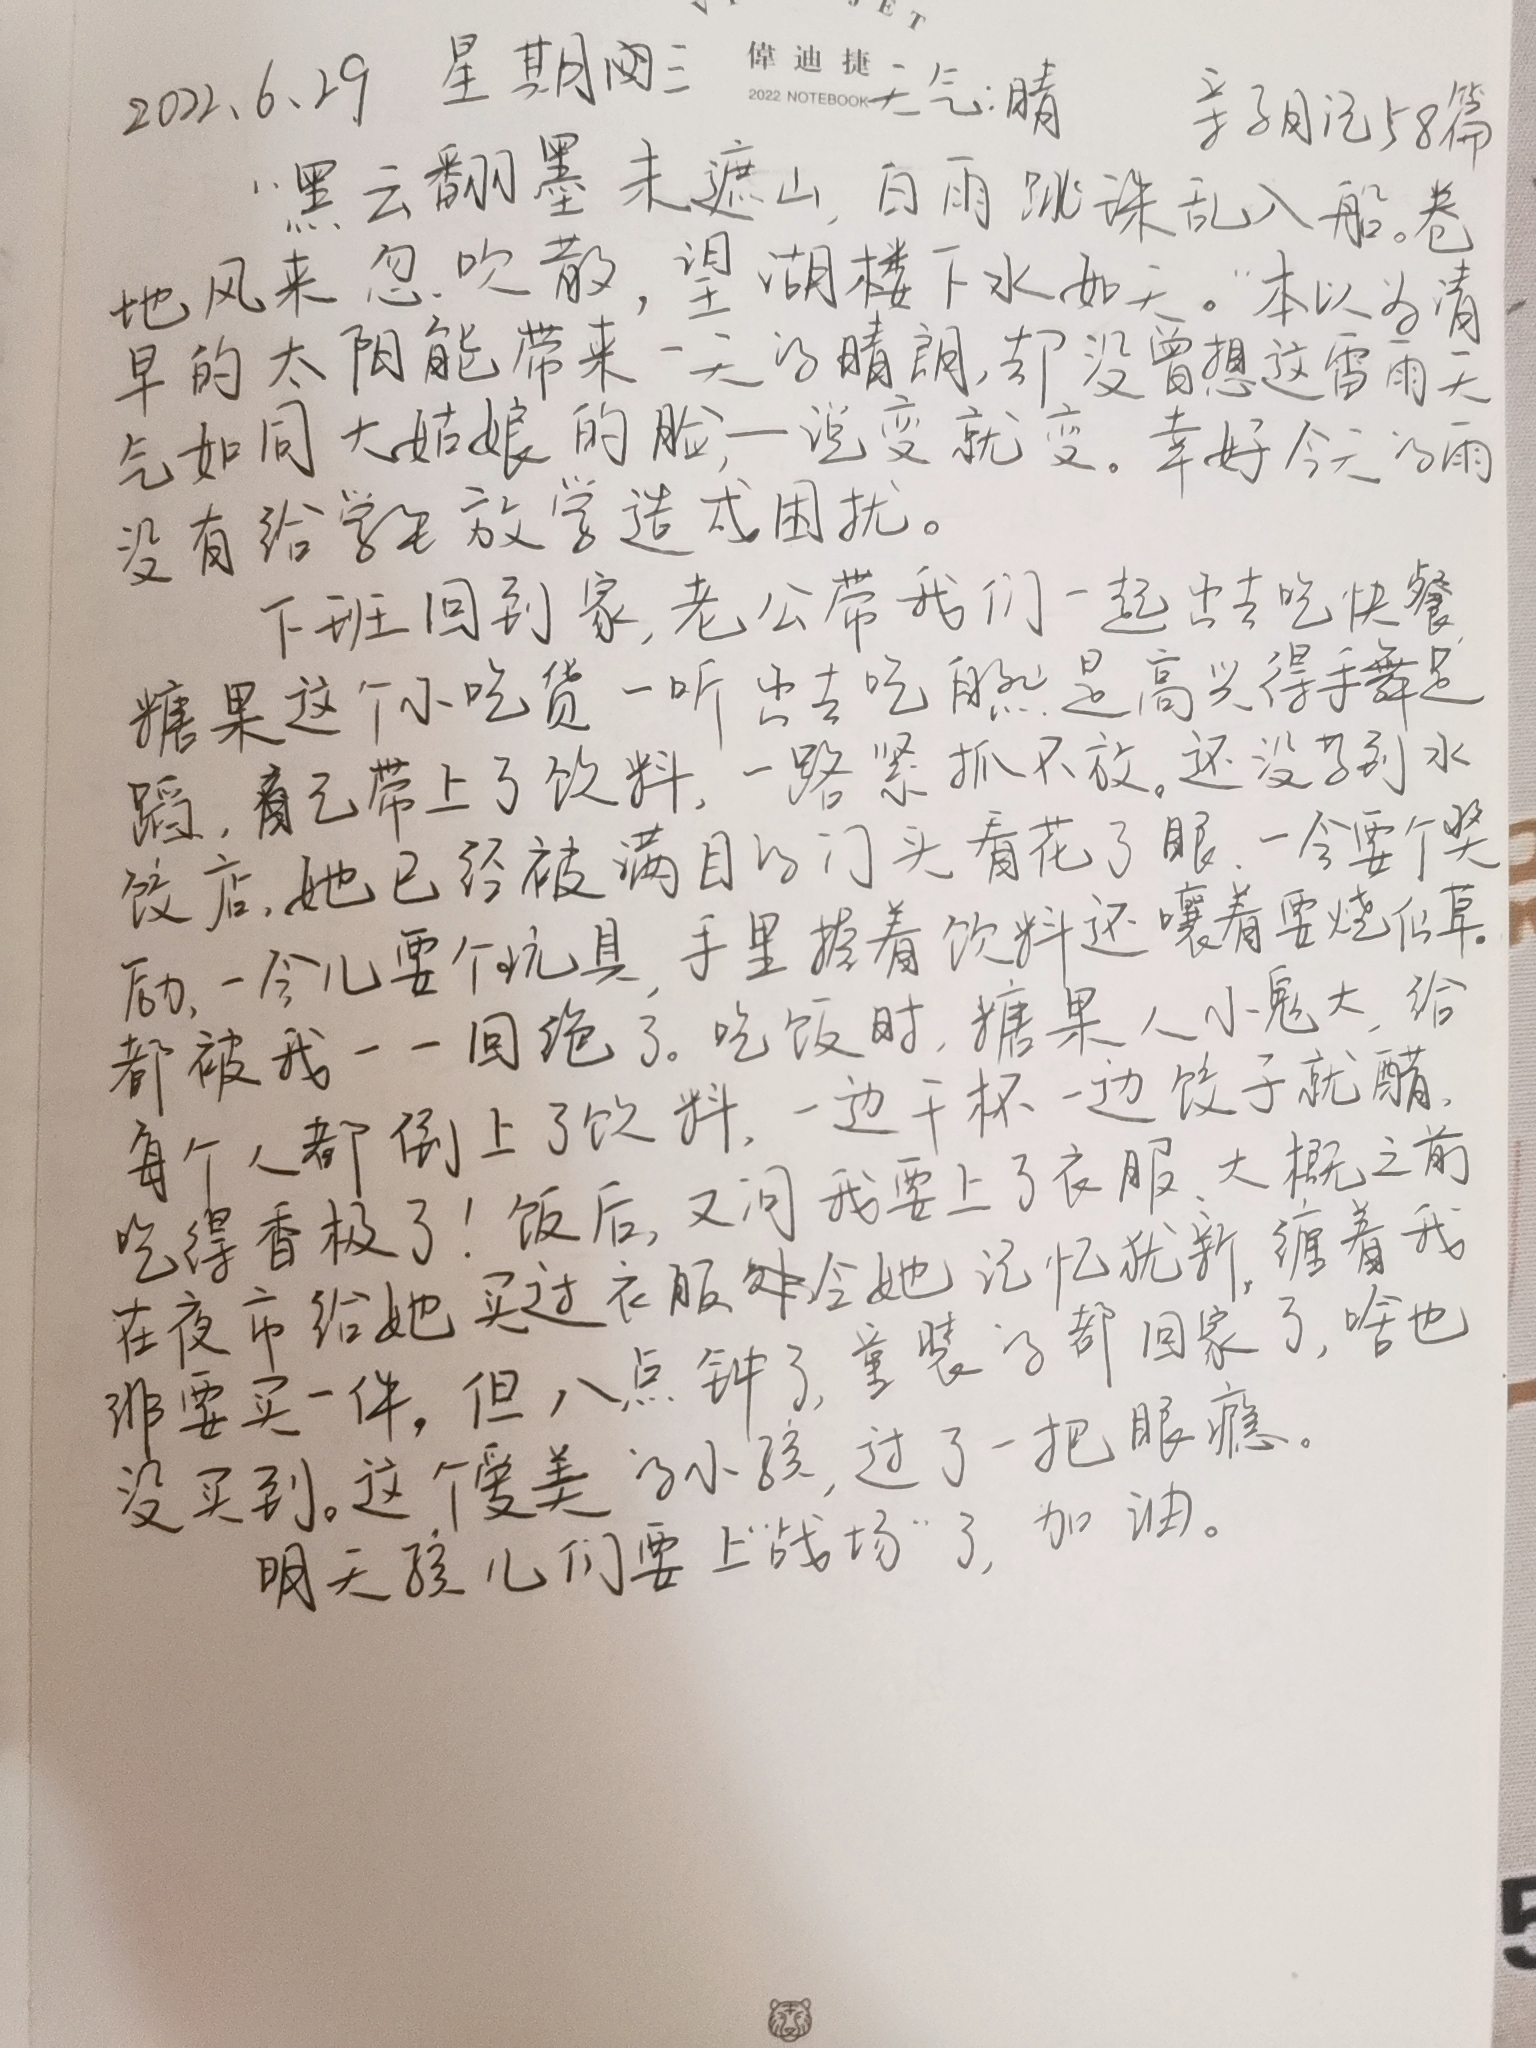 偉迪捷
2022 NOTEBOOK
2022.6.29 星期三 天气:晴 亲子日记58篇
"黑云翻墨未遮山,白雨跳珠乱入船。卷
地风来忽吹散,望湖楼下水如天。"本以为清
早的太阳能带来一天的晴朗,却没曾想这雷雨天
气如同大姑娘的脸,一说变就变。幸好今天的雨
没有给学生放学造成困扰。
下班回到家,老公带我们一起出去吃快餐,
糖果这个小吃货一听出去吃自然是高兴得手舞足
蹈,自己带上了饮料,一路紧抓不放。还没等到水
饺店,她已经被满目的门头看花了眼,一会要个奖
励,一会儿要个玩具,手里握着饮料还嚷着要烧仙草。
都被我一一回绝了。吃饭时,糖果人小鬼大,给
每个人都倒上了饮料,一边干杯一边饺子就醋,
吃得香极了!饭后,又问我要上了衣服,大概之前
在夜市给她买过衣服令她记忆犹新,缠着我
非要买一件。但八点钟了,童装的都回家了,啥也
没买到。这个爱美的小孩,过了一把眼瘾。
明天孩儿们要上"战场"了,加油。
5